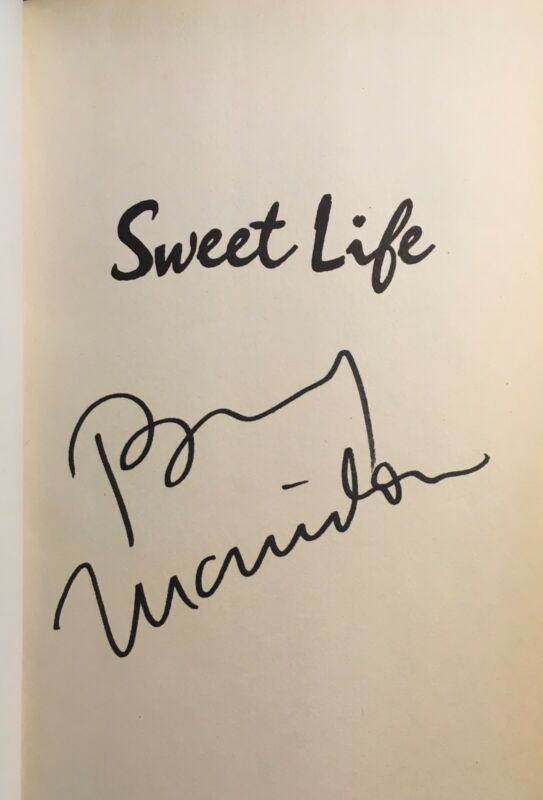 Sweet Life
Barry
Manilow